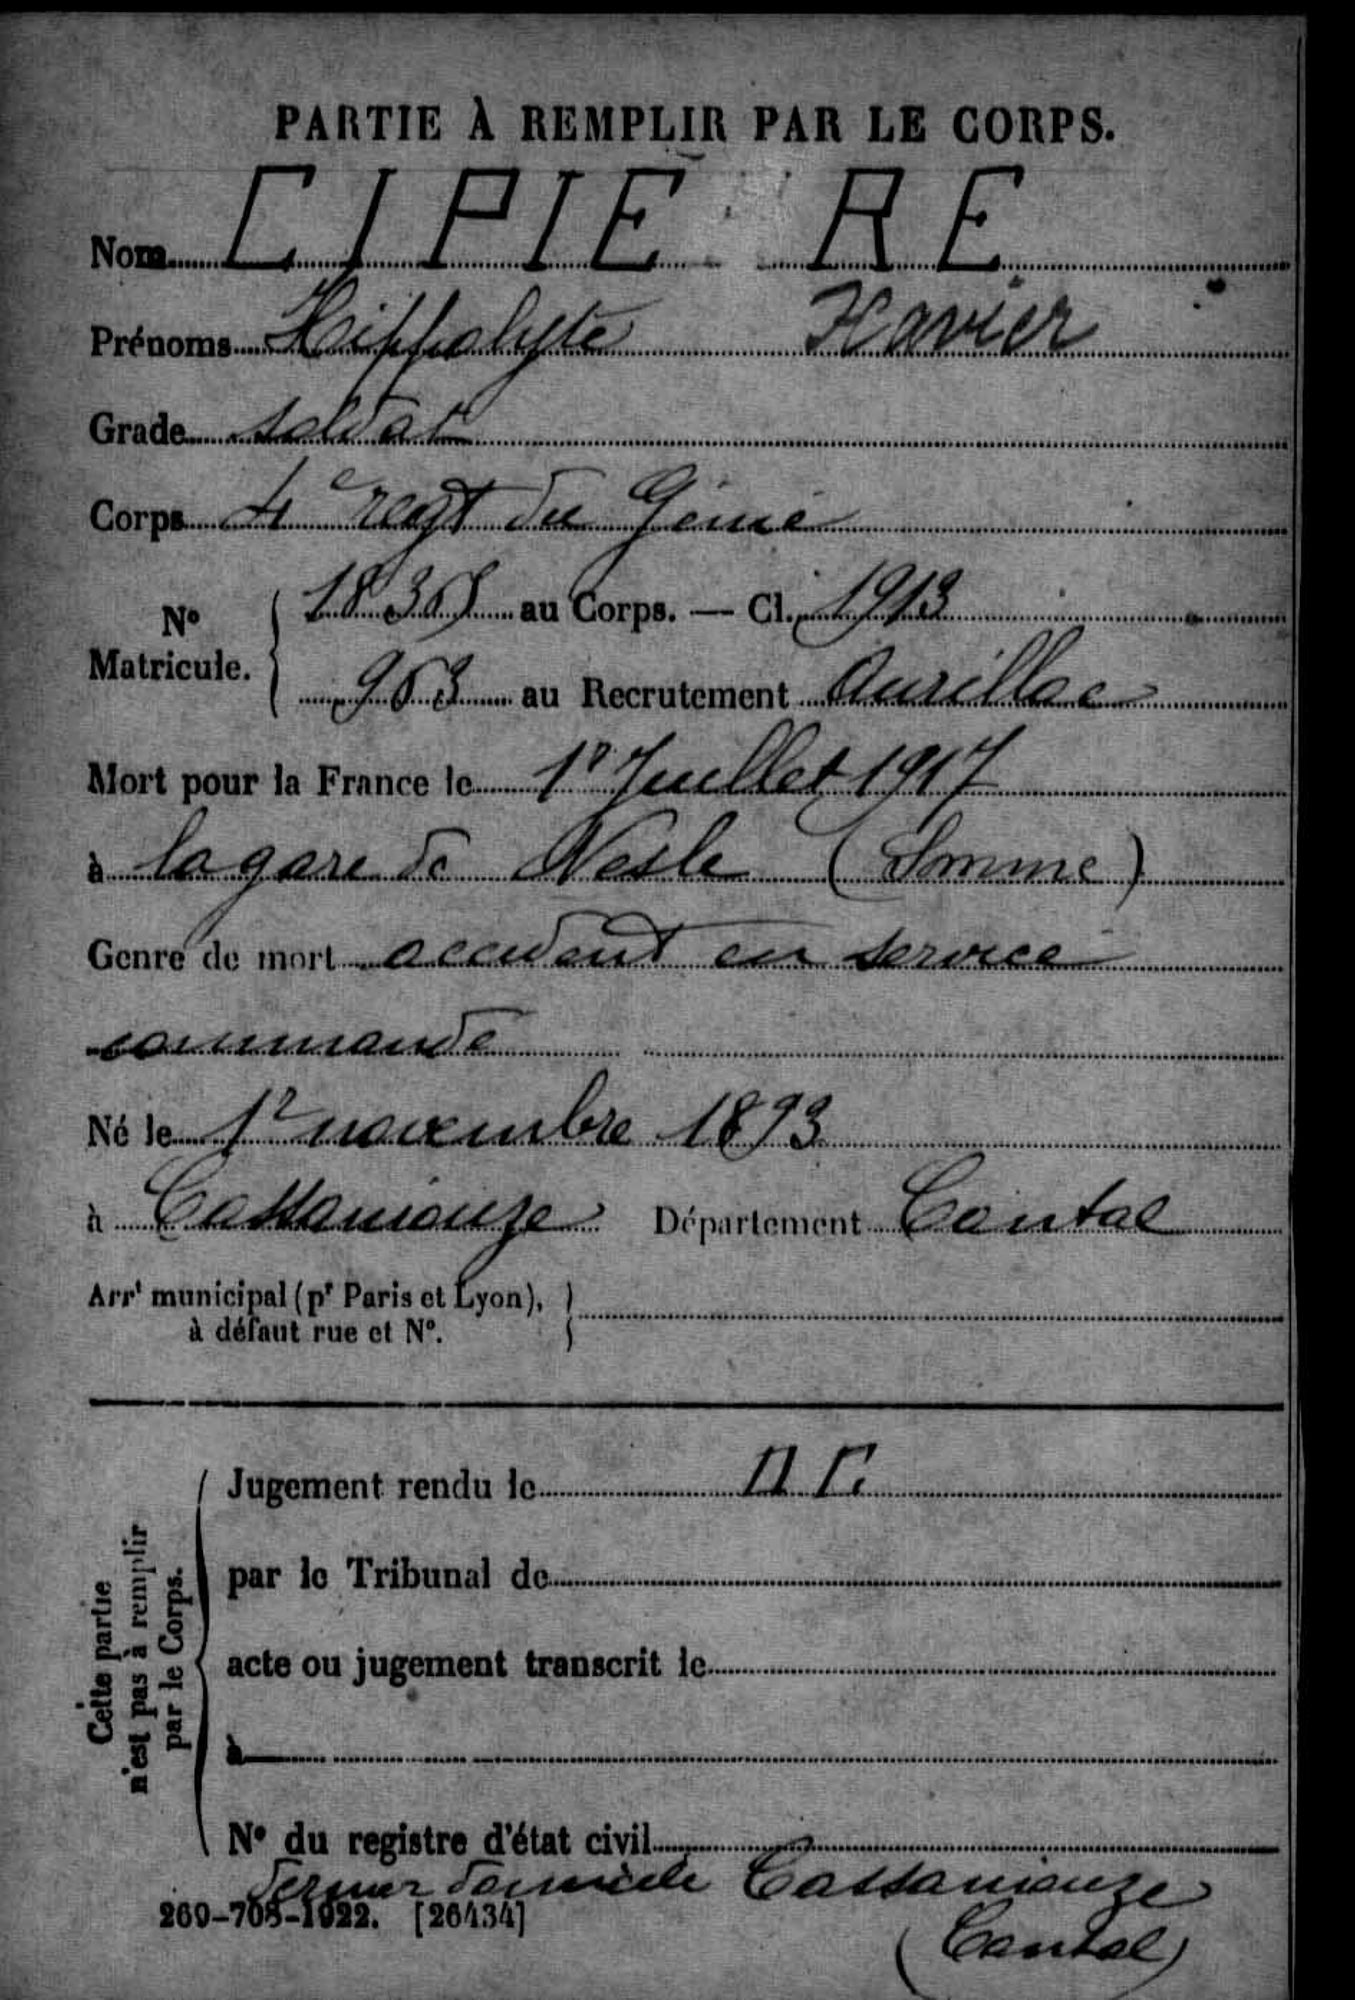 PARTIE À REMPLIR PAR LE CORPS.
Nom CIPIERE
Prénoms Hippolyte Xavier
Grade soldat
Corps 4e regt du Génie
No Matricule. 18365 au Corps. — Cl. 1913
963 au Recrutement Aurillac
Mort pour la France le 1r Juillet 1917
à la gare de Nesle (Somme)
Genre de mort accident en service
commandé
Né le 1r novembre 1893
à Cassaniouze Département Cantal
Arrt municipal (pr Paris et Lyon),
à défaut rue et No.
Cette partie
n'est pas à remplir
par le Corps.
Jugement rendu le
par le Tribunal de
acte ou jugement transcrit le
à
No du registre d'état civil
dernier domicile Cassaniouze
269-708-1922. [26434]
(Cantal)